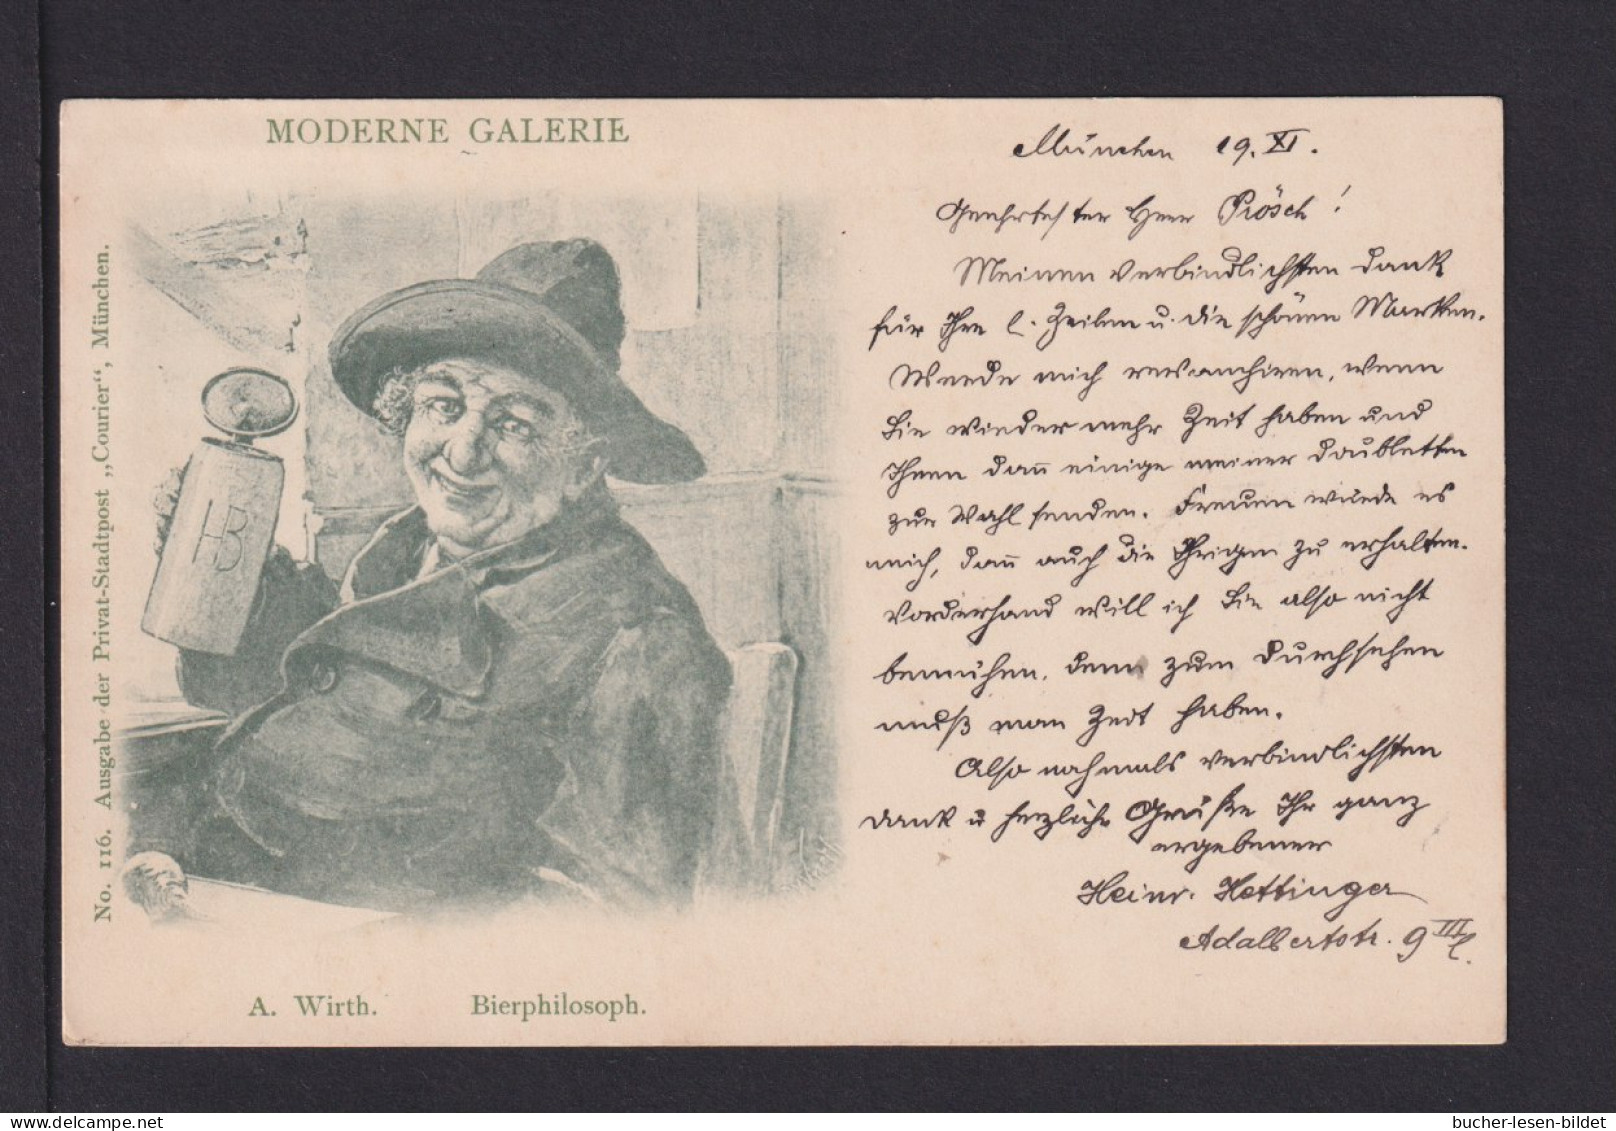 MODERNE GALERIE
No. 116. Ausgabe der Privat-Stadtpost „Courier“, München.
HB
A. Wirth. Bierphilosoph.
München 19. XI.
Geehrtester Herr Prösch!
Meinen verbindlichsten Dank
für Ihre l. Zeilen u. die schönen Marken.
Werde mich revanchiren, wenn
Sie wieder mehr Zeit haben und
Ihnen dann einige meiner Doubletten
zur Wahl senden. Freuen würde es
mich, dann auch die Ihrigen zu erhalten.
Vorderhand will ich Sie also nicht
bemühen, denn zum Durchsehen
muß man Zeit haben.
Also nochmals verbindlichsten
Dank u herzliche Grüße Ihr ganz
ergebener
Heinr. Hettinger
Adalbertstr. 9 III l.
bucher-lesen-bildet